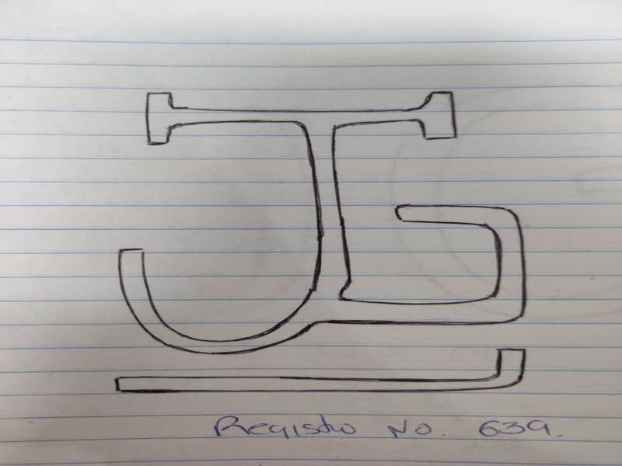 JG
Registro No. 639.